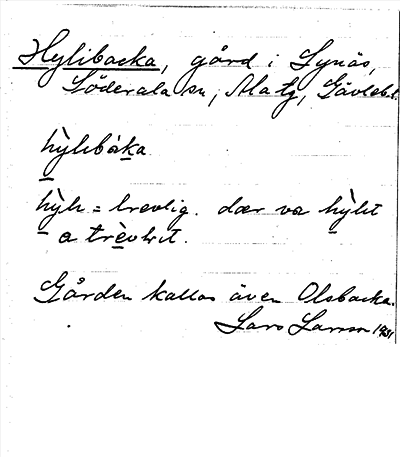 Hylibacka, gård i Lynäs,
Söderala sn, Ala tg, Gävleb.l.
hỳlibàka
hỳli = trevlig. dær va hỳlit
a trèvlit.
Gården kallas även Olsbacka.
Lars Larsson 1931